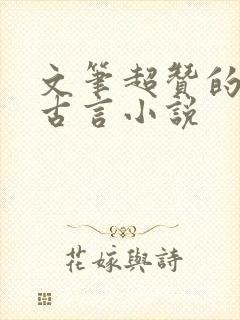 文筆超贊的
古言小説
花嫁與詩